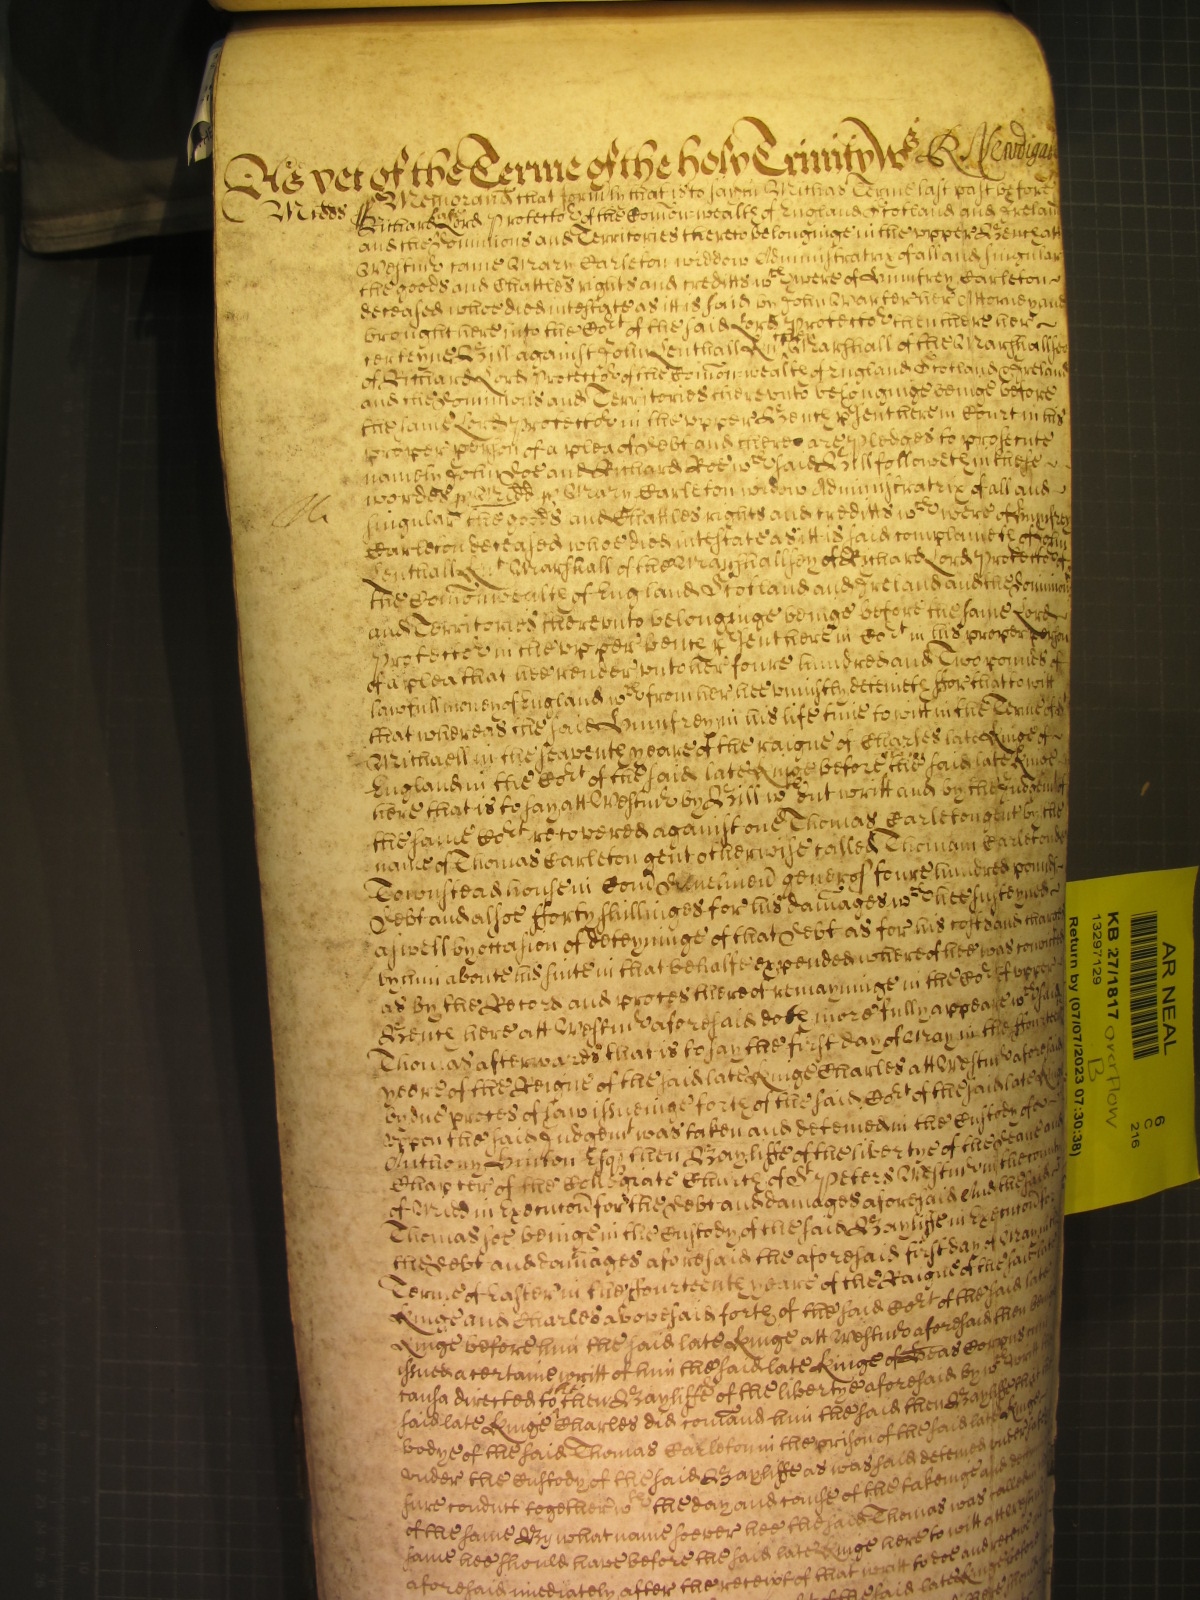 As yet of the Terme of the holy Trinity Wits R Newdigate
Midds ss Memorand that formerly that is to say in Michas Terme last past before
Richard late Lord Protector of the Comonwealth of England Scotland and Ireland
and the Dominions and Territories thereto belonginge in the upper Bench att
Westmr came Mary Carleton widdow Administratrix of all and singular
the goods and Chattles rights and creditts wch were of Humfrey Carleton
deceased whoe died intestate as itt is said by John Warter her Attorney and
brought here into the Cort of the said Lord Protector then there her
certeyne Bill against John Lenthall Knt the Marshall of the Marshallsey
of Richard Lord Protector of the Comonwealth of England Scotland & Ireland
and the Dominions and Territories thereunto belonginge beinge before
the same Lord Protector in the upper Bench psent here in Court in his
proper person of a plea of Debt and there are pledges to prosecute
namely John Doe and Richard Roe wch said Bill followeth in these
wordes ss Midd ss Mary Carleton widow Administratrix of all and
singular the goods and Chattles rights and creditts wch were of Humfrey
Carleton deceased whoe died intestate as itt is said complaineth of John
Lenthall Knt Marshall of the Marshallsey of Richard Lord Protector of
the Comonwealth of England Scotland and Ireland and the Dominions
and Territories thereunto belonginge beinge before the same Lord
Protector in the upper bench psent here in Cort in his proper person
of a plea that hee render unto her foure hundred and Two poundes of
lawfull money of England wch from her hee uniustly deteineth ffor that to witt
that whereas the said Humfrey in his life time to witt in the Terme of St
Michaell in the seaventh yeare of the raigne of Charles late Kinge of
England in the Cort of the said late Kinge before the said late Kinge
here that is to say att Westmr by Bill wthout writt and by the Judgemt of
the same Cort recovered against one Thomas Carleton gent by the
name of Thomas Carleton gent otherwise called Thomam Carleton de
Townstead house in Com generos foure hundred pounds
Debt and alsoe fforty shillinges for his damages wch hee susteyned
aswell by occasion of deteyninge of that Debt as for his costs and charges
by him aboute his suite in that behalfe expended whereof hee was convicted
as by the Record and proces thereof remayninge in the Cort of upper
Bench here att Westmr aforesaid doth more fully appeare wch said
Thomas afterwards that is to say the first day of May in the ffourteenth
yeare of the Reigne of the said late Kinge Charles att Westmr aforesaid
by due proces of law issueinge forth of the said Cort of the said late Kinge
uppon the said Judgemt was taken and deteined in the Custody of
Anthony Hinton Esqr then Bayliffe of the libertye of the Deane and
Chapter of the Collegiate Church of St Peters Westmr in the county
of Midd in Execucon for the Debt and damages aforesaid And the said
Thomas soe beinge in the Custody of the said Bayliffe in Execucon for
the Debt and damages aforesaid the aforesaid first day of May in
Terme of Easter in the ffourteenth yeare of the Raigne of the said late
Kinge and Charles abovesaid forth of the said Cort of the said late
Kinge before him the said late Kinge att Westmr aforesaid then beinge
issued a certaine writt of him the said late Kinge of Heas Corpus cum
causa directed to the then Bayliffe of the libertye aforesaid by wch writt the
said late Kinge Charles did comand him the said then Bayliffe that
bodye of the said Thomas Carleton in the prison of the said late Kinge
under the Custody of the said Bayliffe as was said deteined under safe
sure conduct together wth the day and cause of the takeinge and
of the same By what name soever hee the said Thomas was called in
same hee should have before the said late Kinge here to witt att Westmr
aforesaid imediately after the receipt of that writt to doe and receive
of the said late Kinge before
AR NEAL
KB 27/1817 overflow
13297129 B
Return by (07/07/2023 07:30:38)
6
C
216